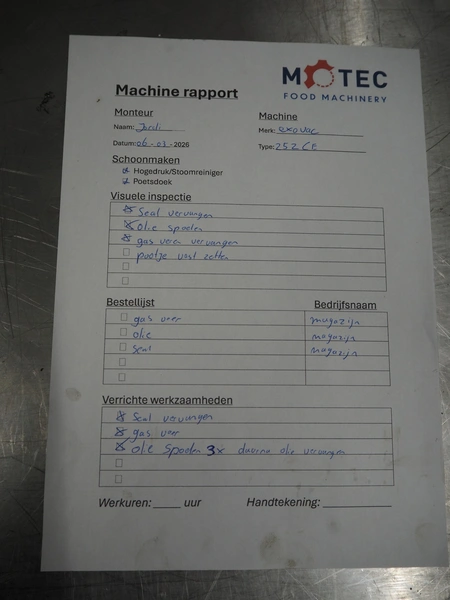 MOTEC
FOOD MACHINERY
Machine rapport
Monteur
Naam: Jordi
Datum: 06-01-2026
Machine
Merk: exovac
Type: 252 CE
Schoonmaken
Hogedruk/Stoomreiniger
Poetsdoek
Visuele inspectie
Seal vervangen
Olie spoelen
gas veren vervangen
pootje vast zetten
Bestellijst Bedrijfsnaam
gas veer magazijn
olie magazijn
Seal magazijn
Verrichte werkzaamheden
Seal vervangen
gas veer
olie spoelen 3x daarna olie vervangen
Werkuren: ____ uur Handtekening: ________